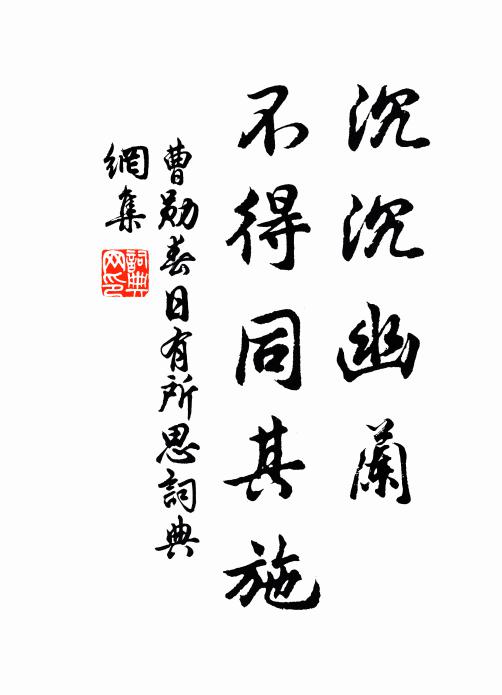 沉沉幽蘭
不得同其施
曹勛春日有所思詞典
網集
詞典
网印